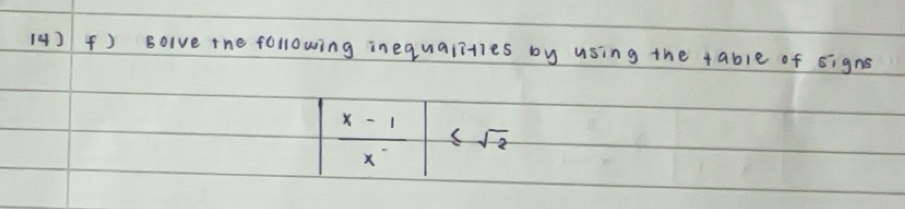 14) f) solve the following inequalities by using the table of signs
| x - 1 / x | ≤ √2